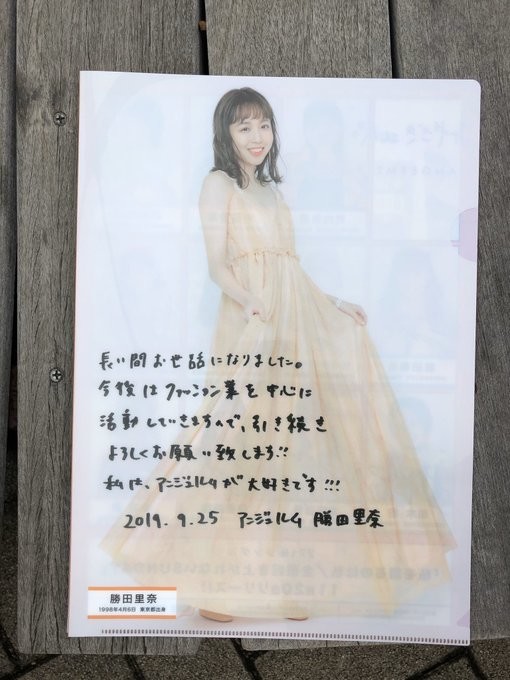 長い間お世話になりました。
今後はファッション業を中心に
活動していきますので、引き続き
よろしくお願い致します!!
私は、アンジュルムが大好きです!!!
2019.9.25 アンジュルム 勝田里奈
勝田里奈
1998年4月6日 東京都出身